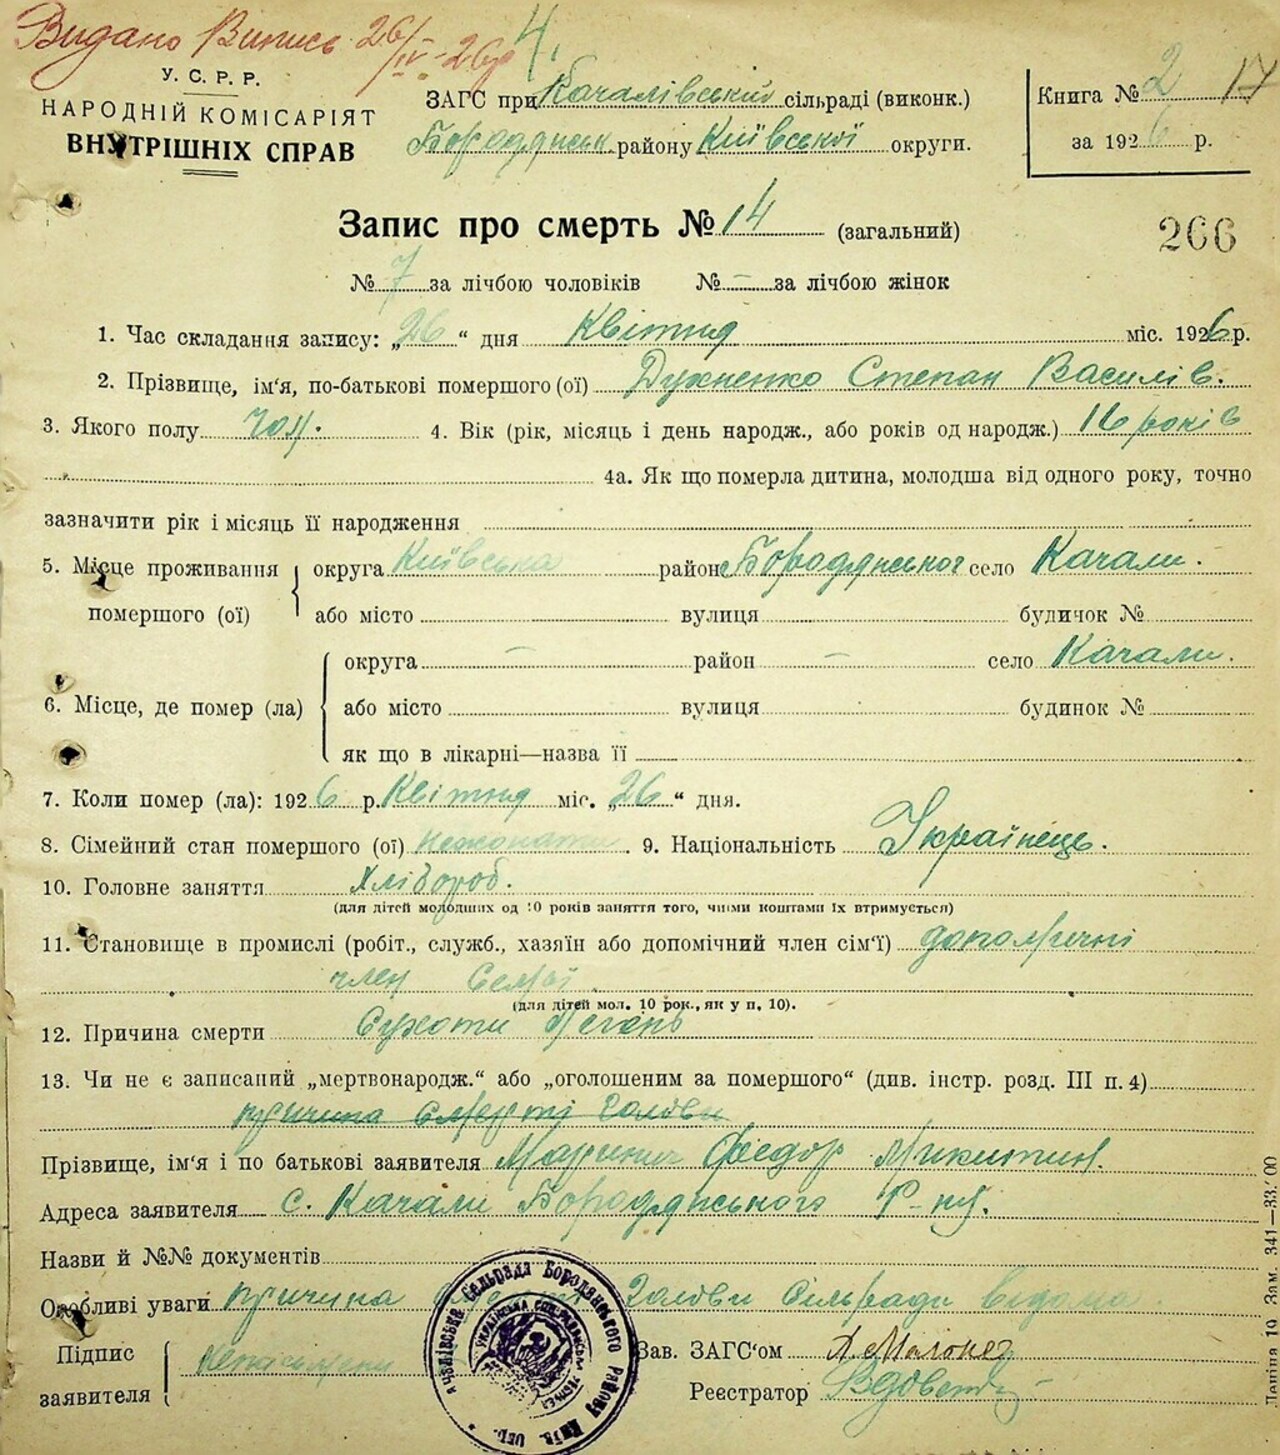 Видано Випись 26/IV-26р
4.
У. С. Р. Р.
НАРОДНІЙ КОМІСАРІЯТ
ВНУТРІШНІХ СПРАВ
ЗАГС при Качалівській сільраді (виконк.)
Бородянськ. району Київської округи.
Книга № 2 17
за 1926 р.
Запис про смерть № 14 (загальний)
266
№ 7 за лічбою чоловіків № — за лічбою жінок
1. Час складання запису: „26“ дня Квітня міс. 1926 р.
2. Прізвище, ім'я, по-батькові помершого (ої) Духненко Степан Василів.
3. Якого полу чол. 4. Вік (рік, місяць і день народж., або років од народж.) 16 років
4а. Як що померла дитина, молодша від одного року, точно
зазначити рік і місяць її народження
5. Місце проживання помершого (ої) округа Київська район Бородянського село Качали.
або місто вулиця будичок №
6. Місце, де помер (ла) округа — район — село Качали.
або місто вулиця будинок №
як що в лікарні—назва її
7. Коли помер (ла): 1926 р. Квітня міс. „26“ дня.
8. Сімейний стан помершого (ої) нежонати. 9. Національність Українець.
10. Головне заняття Хлібороб.
(для дітей молодших од 10 років заняття того, чиїми коштами їх втримується)
11. Становище в промислі (робіт., служб., хазяїн або допомічний член сім'ї) допомічні
член Семьї
(для дітей мол. 10 рок., як у п. 10).
12. Причина смерти Сухоти Легень
13. Чи не є записаний „мертвонародж.“ або „оголошеним за помершого“ (див. інстр. розд. III п. 4)
причина смерті голові
Прізвище, ім'я і по батькові заявителя Маринич Федор Микитин.
Адреса заявителя с. Качали Бородянського Р-ну.
Назви й №№ документів
Особливі уваги причина голові Сільради відома
Підпис заявителя неписьмени
Зав. ЗАГС'ом
Реєстратор
Качалівська Сельрада Бородянського Району Київ.
Українська Соц.
Леніна 10 Зам. 341—33.'00